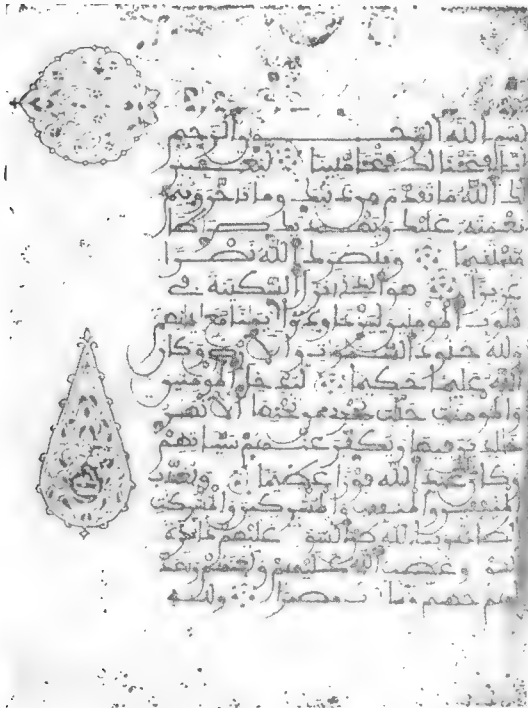 بسم الله الرحمن الرحيم
إنا فتحنا لك فتحا مبينا ليغفر
لك الله ما تقدم من ذنبك وما تأخر ويتم
نعمته عليك ويهديك صراطا
مستقيما وينصرك الله نصرا
عزيزا هو الذي أنزل السكينة في
قلوب المؤمنين ليزدادوا إيمانا مع إيمانهم
ولله جنود السموات والأرض وكان
الله عليما حكيما ليدخل المؤمنين
والمؤمنات جنات تجري من تحتها الأنهار
خالدين فيها ويكفر عنهم سيئاتهم
وكان عند الله فوزا عظيما ويعذب
المنافقين والمنافقات والمشركين والمشركات
الظانين بالله ظن السوء عليهم دائرة
السوء وغضب الله عليهم ولعنهم وأعد
لهم جهنم وساءت مصيرا ولله